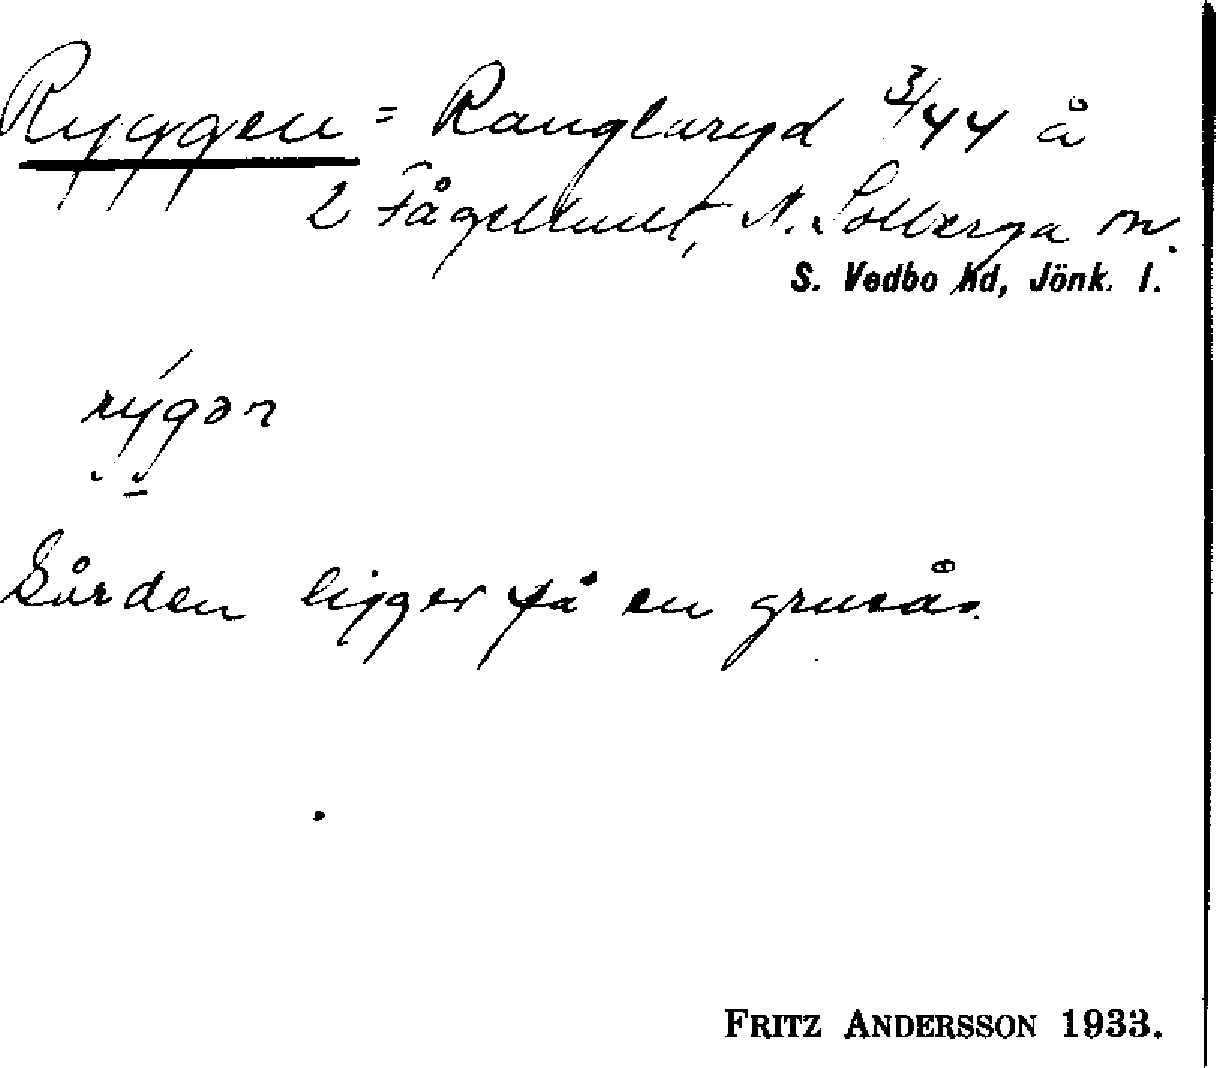 Ryggen = Ranglaryd 3/44 å
2 Fågelhult, N. Solberga sn.
S. Vedbo hd, Jönk. l.
rýgən
Gården ligger på en grusås.
FRITZ ANDERSSON 1933.